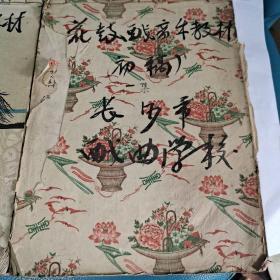 花鼓戏音乐教材
初稿
长沙市
戏曲学校
材